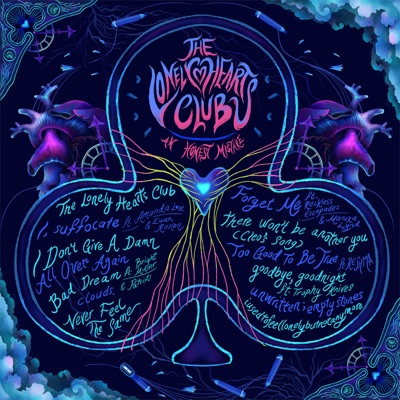 THE
LONELY HEARTS
CLUB
AN HONEST MISTAKE
The Lonely Hearts Club
Suffocate ft. Amanda Lou
& Evan
I Don't Give A Damn
All Over Again
Bad Dream ft. Bright
clouds.
Never Feel
The Same
Forget Me ft.
Reckless
Escapades
&
There Won't be another you
(Cleo's Song)
Too Good To Be True ft.
goodbye, goodnight
ft. Trophy Knives
unwritten; empty stones
iusedtofeellonelybutnotanymore